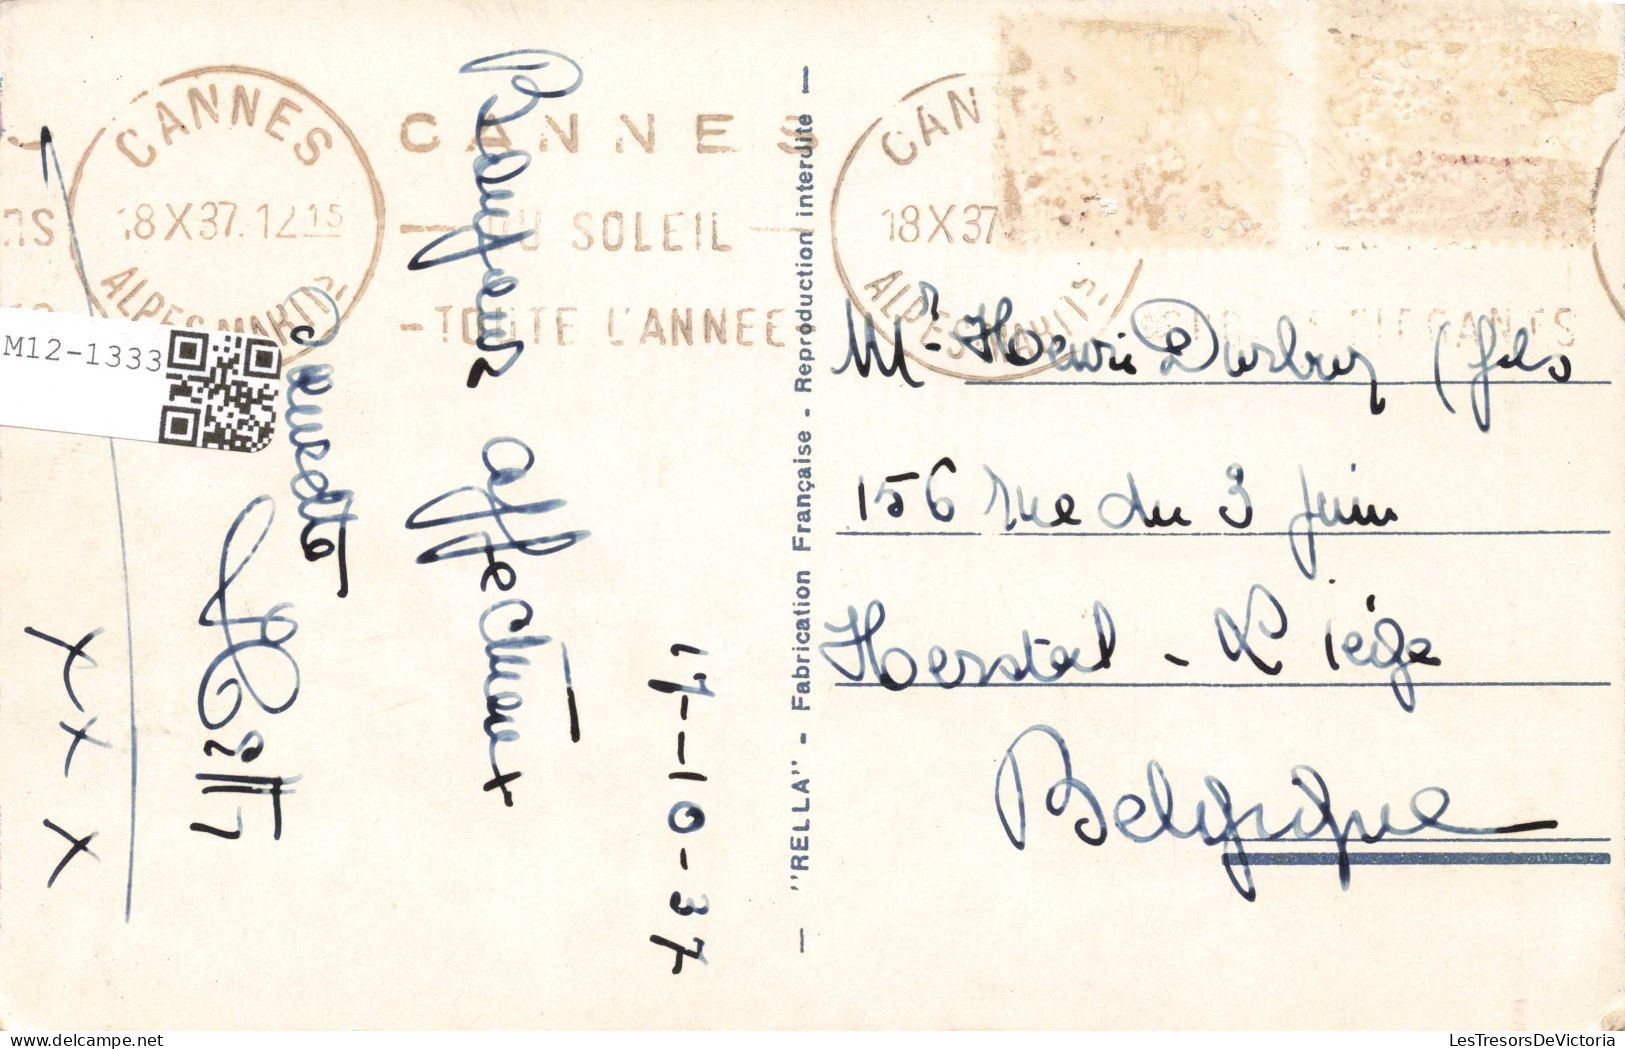 CANNES
18 X 37. 12 15
ALPES MARIT
CANNES
DU SOLEIL
TOUTE L'ANNEE
CAN
18 X 37
ALPES MARIT
M12-1333
17-10-37
Bonjour affectueux
x x x
— "RELLA" - Fabrication Française - Reproduction interdite —
Mr. Henri (fils
156 rue du 3 juin
Herstal - Liége
Belgique
LesTresorsDeVictoria.com